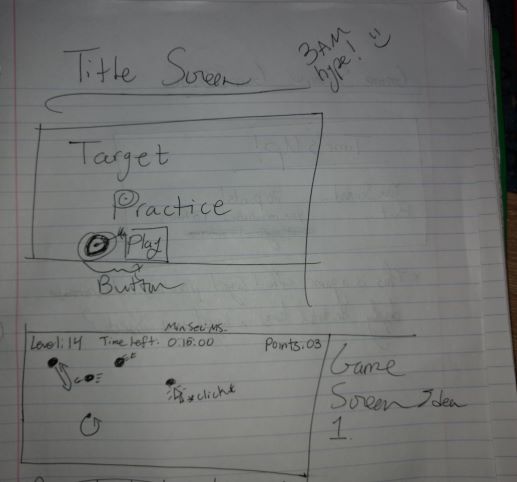 Title Screen
3AM
hype!
Target
Practice
Play
Button
Min Sec: MS.
Level: 14 Time Left: 0:15:00 Points: 03
*click*
Game
Screen Idea
1